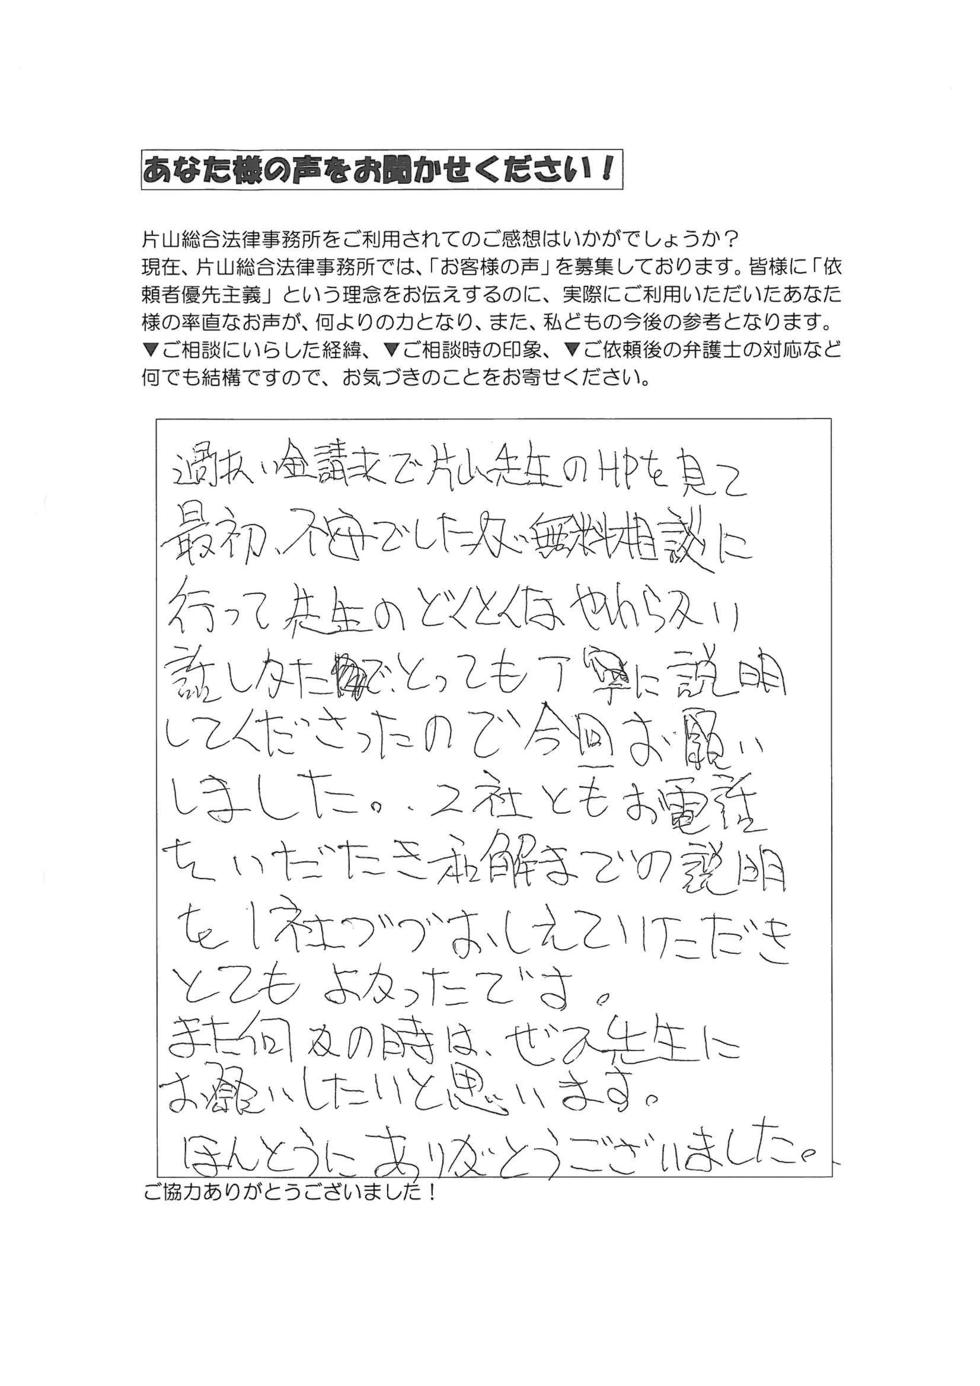 あなた様の声をお聞かせください！
片山総合法律事務所をご利用されてのご感想はいかがでしょうか？
現在、片山総合法律事務所では、「お客様の声」を募集しております。皆様に「依
頼者優先主義」という理念をお伝えするのに、実際にご利用いただいたあなた
様の率直なお声が、何よりの力となり、また、私どもの今後の参考となります。
▼ご相談にいらした経緯、▼ご相談時の印象、▼ご依頼後の弁護士の対応など
何でも結構ですので、お気づきのことをお寄せください。
過払い金請求で片山先生のHPを見て
最初、不安でしたが無料相談に
行って先生のどくとくなやわらかい
話しかたで、とっても丁寧に説明
してくださったので今回お願い
しました。2社ともお電話
をいだたき和解までの説明
を1社づづおしえていただき
とてもよかったです。
また何かの時は、ぜひ先生に
お願いしたいと思います。
ほんとうにありがとうございました。
ご協力ありがとうございました！